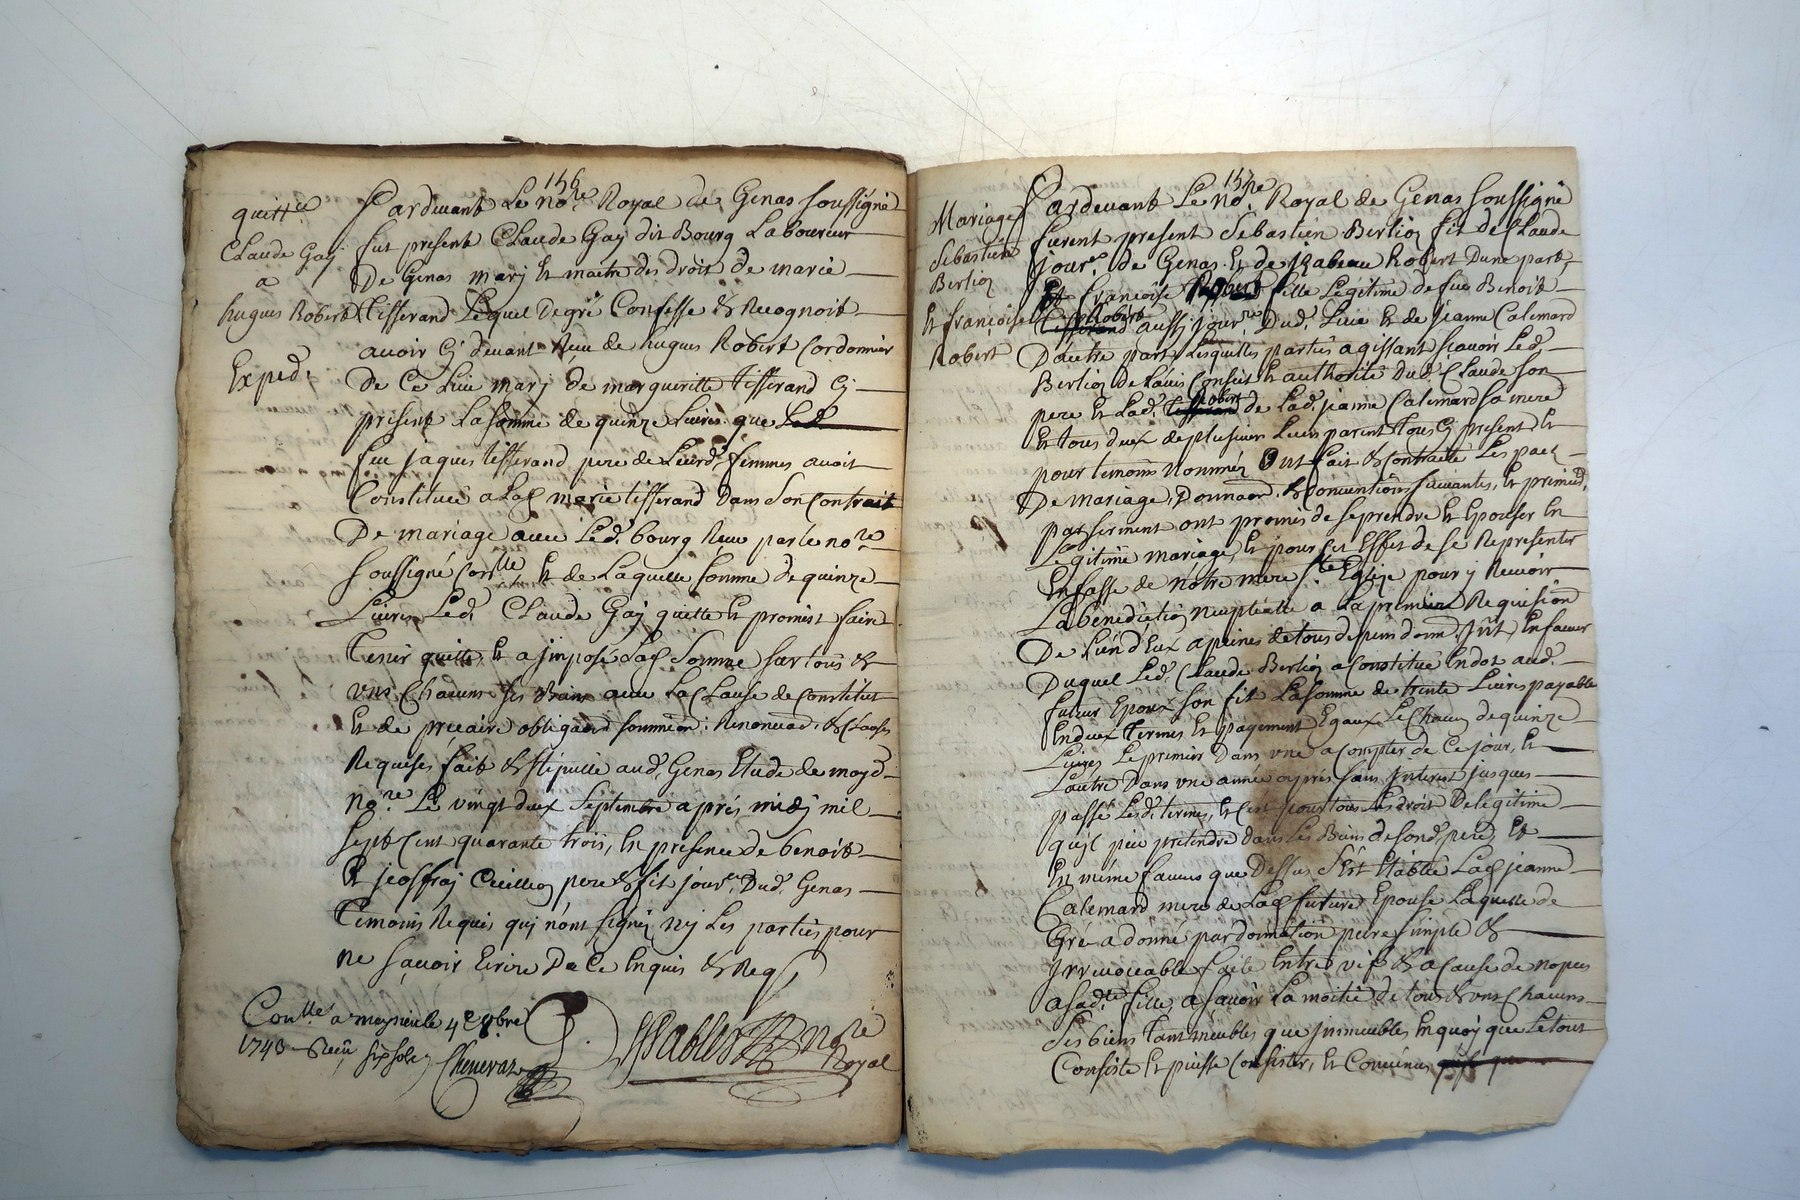 156
quitt.ce
Claude Gaj
a
hugues Robert
Exped.
Pardevant Le no.re Royal de Genas soussigné
fut present Claude Gaj dit Bourg Laboureur
De Genas marj et maitre des droit de marie
tisserand Lequel de gré Confesse & Recognoit
avoir Cj devant Reçu de hugues Robert Cordonnier
de Ce Lieu marj de margueritte tisserand Cj
present La somme de quinze Livres que Led.
feu jaques tisserand pere de Leurd. femmes avoit
Constituée a Lad. marie tisserand Dans son Contrait
De mariage avec Led. bourg Reçu par le no.re
soussigné Con.llé et de Laquelle somme de quinze
Livres Led. Claude Gaj quitte et promest faire
Tenir quitte, et a jmposé Lad. somme sur tous &
uns Chacuns ses Biens avec La Clause de Constitut
Et de precaire obligaon soumiõn: Renonciaõ: & Clauses
Requises fait & stipullé aud. Genas Etude de moyd.
No.re Le vingt deux Septembre aprés midj mil
sept Cent quarante trois, En presence de benoit
Et jeoffraj Cuilleron pere & fit jour.er Dud. Genas
Temoins Requis quj n'ont signé, nj Les parties pour
ne sçavoir Ecrire De Ce Enquis & Req.
Con.llé a meyzieu le 4e 8bre
1743 Reçu six sols Chenevaz
Sablet no.re
Royal
157
Mariage
Sebastien
Berlioz
Et françoise
Robert
Pardevant Le no.re Royal de Genas soussigné
furent present Sebastien Berlioz fit de Claude
jour.er de Genas et de jsabeau Robert Dune part,
Et françoise Robert fille Légitime de feu Benoit
Robert aussj jour.er Dud. Lieu et de jeanne Calemard
D'autre part Lesquelles parties agissant sçavoir Led.
Berlioz de L'avis Conseil et authorité Dud. Claude son
pere et Lad. Robert de Lad. jeanne Calemard sa mere
Et tous deux de plusieur Leurs parent tous Cj present et
pour temoins nommés Ont fait & Contracté Les pact
De mariage, Donnaon. & Conventions suivantes, Et primied.
par serment ont promis de se prendre et Epouser En
Legitime mariage, Et pour Cet Effet de se Representer
En fasse de nôtre mere s.te Eglise pour j Recevoir
La bénédiction nuptialle a La premiere Requisition
De L'un d'Eux a peines de tous depens dom. jnt. En faveur
Duquel Led. Claude Berlioz a Constitué En dot aud.
futur Epoux son fit La somme de trente Livres payable
En deux Termes Et payement Egaux Le Chacun de quinze
Livres Le premier Dans une a Compter de Ce jour, Et
L'autre Dans une année après sans jnterest jusques
passé Lesd. termes, Et C'est pour tous Les droit De Legitime
qu'jl peu pretendre dans Les Biens de sond. pere, Et
En méme faveur que Dessus S'est Etablie Lad. jeanne
Calemard mere de Lad. future Epouse Laquelle de
Gré a donné par donnation pure simple &
jrrevocable faite Entre vif & a Cause de nopces
a sad.te fille a sçavoir La moitié de tous & uns Chacuns
Ses biens Tant meubles que jmmeubles En quoj que Le tout
Consiste Et puisse Consister, Et Convenus